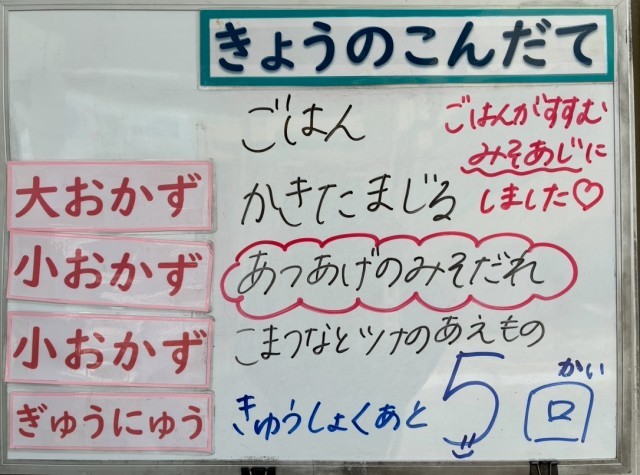 きょうのこんだて
ごはん
ごはんがすすむ
みそあじに
しました♡
大おかず かきたまじる
小おかず あつあげのみそだれ
小おかず こまつなとツナのあえもの
ぎゅうにゅう
きゅうしょくあと5回
かい